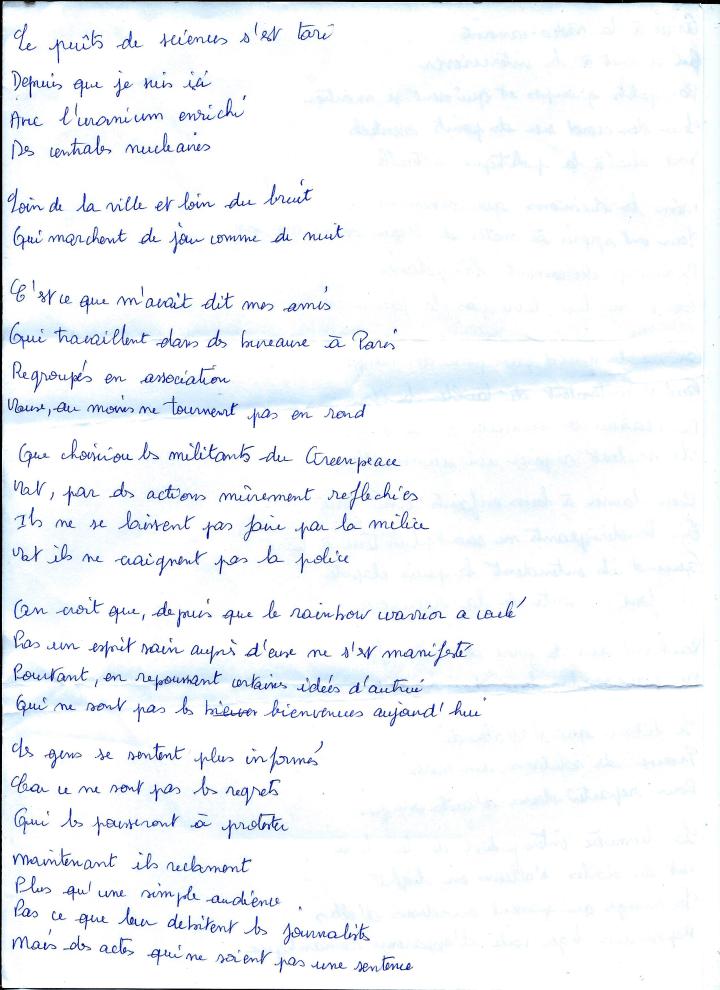 Le puîts de sciences s'est tari
Depuis que je suis ici
Avec l'uranium enrichi
Des centrales nucleaires
Loin de la ville et loin du bruit
Qui marchent de jour comme de nuit
C'est ce que m'avait dit mes amis
Qui travaillent dans des bureaux à Paris
Regroupés en association
au moins ne tournent pas en rond
Que les militants du Greenpeace
par des actions mûrement reflechies
Ils ne se laissent pas faire par la milice
ils ne craignent pas la police
On croit que, depuis que le rainbow warrior a coulé
Pas un esprit sain auprès d'eux ne s'est manifesté
Pourtant, en repoussant certaines idées d'autrui
Qui ne sont pas les bienvenues aujourd'hui
Les gens se sentent plus informés
Car ce ne sont pas les regrets
Qui les pousseront à protester
Maintenant ils reclament
Plus qu'une simple audience
Pas ce que leur debitent les journalists
Mais des actes qui ne soient pas une sentence